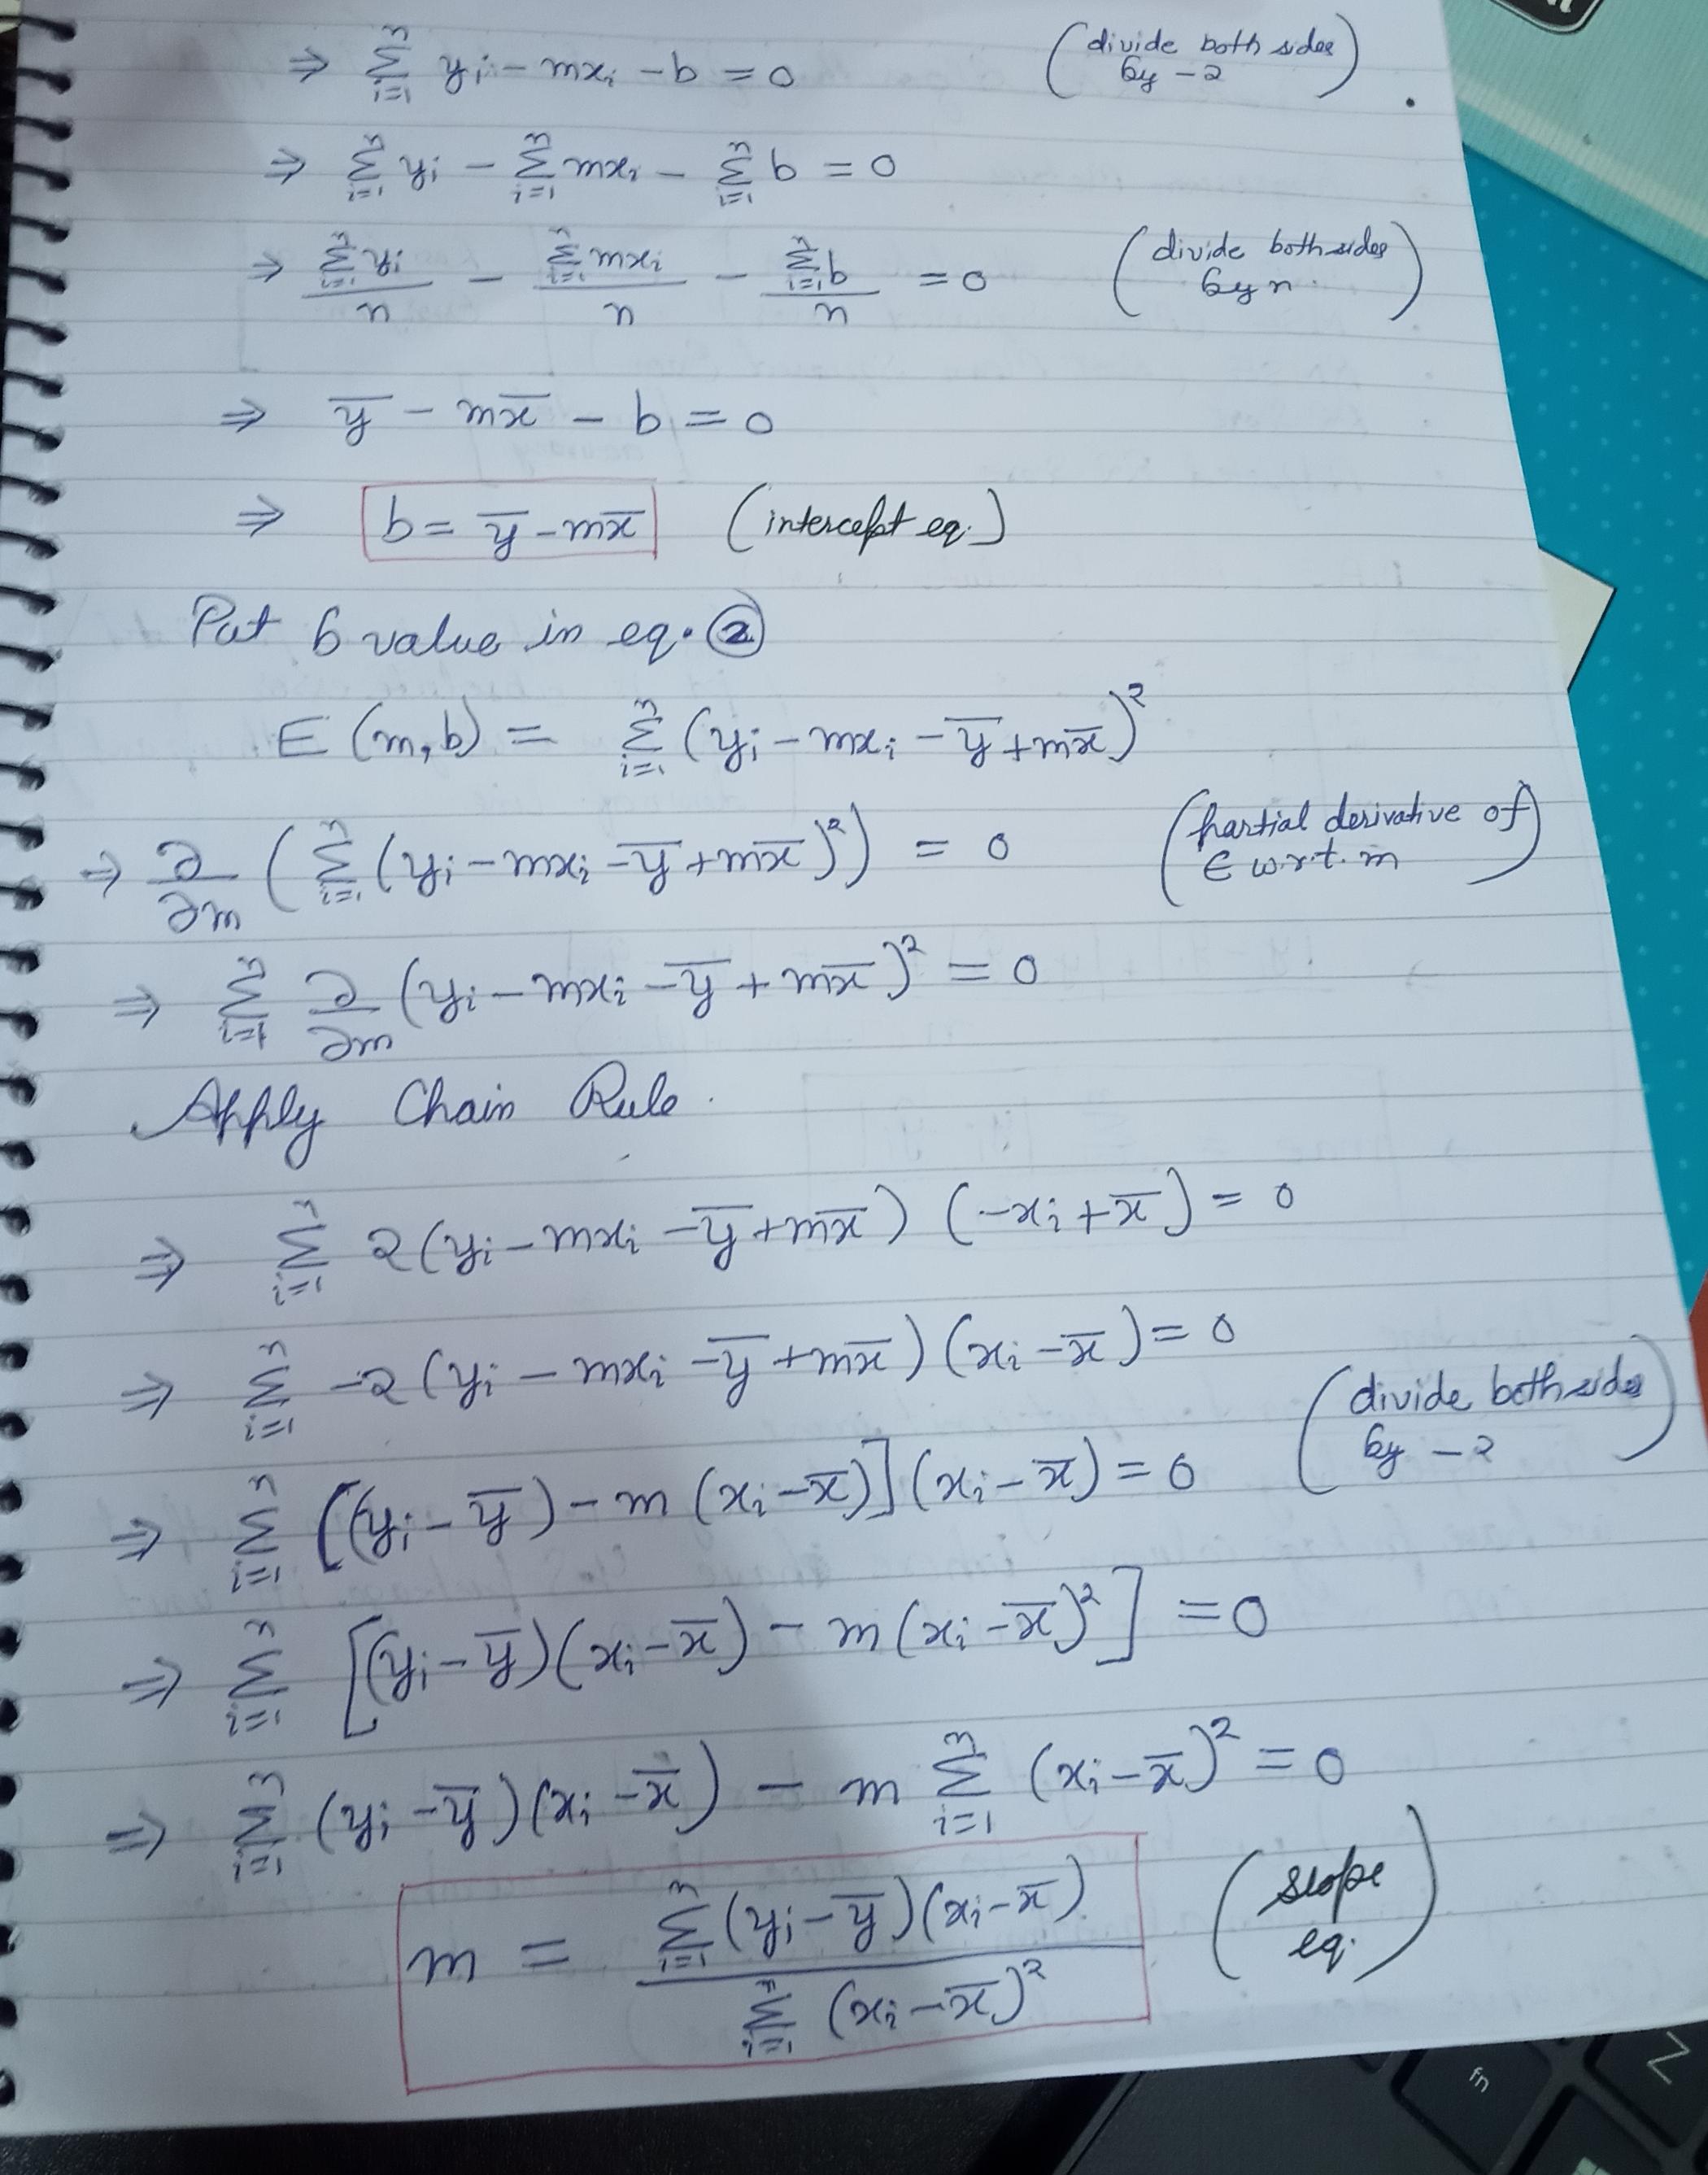 ⇒ Σ_{i=1}^{n} yᵢ - mxᵢ - b = 0 (divide both sides by -2)
⇒ Σ_{i=1}^{n} yᵢ - Σ_{i=1}^{n} mxᵢ - Σ_{i=1}^{n} b = 0
⇒ (Σ_{i=1}^{n} yᵢ)/n - (Σ_{i=1}^{n} mxᵢ)/n - (Σ_{i=1}^{n} b)/n = 0 (divide both sides by n)
⇒ y̅ - mx̅ - b = 0
⇒ b = y̅ - mx̅ (intercept eq.)
Put b value in eq. ②
E (m, b) = Σ_{i=1}^{n} (yᵢ - mxᵢ - y̅ + mx̅)²
⇒ ∂/∂m (Σ_{i=1}^{n} (yᵢ - mxᵢ - y̅ + mx̅)²) = 0 (partial derivative of E w.r.t. m)
⇒ Σ_{i=1}^{n} ∂/∂m (yᵢ - mxᵢ - y̅ + mx̅)² = 0
Apply Chain Rule.
⇒ Σ_{i=1}^{n} 2(yᵢ - mxᵢ - y̅ + mx̅) (-xᵢ + x̅) = 0
⇒ Σ_{i=1}^{n} -2(yᵢ - mxᵢ - y̅ + mx̅) (xᵢ - x̅) = 0
(divide both sides by -2)
⇒ Σ_{i=1}^{n} [(yᵢ - y̅) - m (xᵢ - x̅)] (xᵢ - x̅) = 0
⇒ Σ_{i=1}^{n} [(yᵢ - y̅)(xᵢ - x̅) - m(xᵢ - x̅)²] = 0
⇒ Σ_{i=1}^{n} (yᵢ - y̅)(xᵢ - x̅) - m Σ_{i=1}^{n} (xᵢ - x̅)² = 0
m = (Σ_{i=1}^{n} (yᵢ - y̅)(xᵢ - x̅))/(Σ_{i=1}^{n} (xᵢ - x̅)²) (slope eq.)
fn
Z